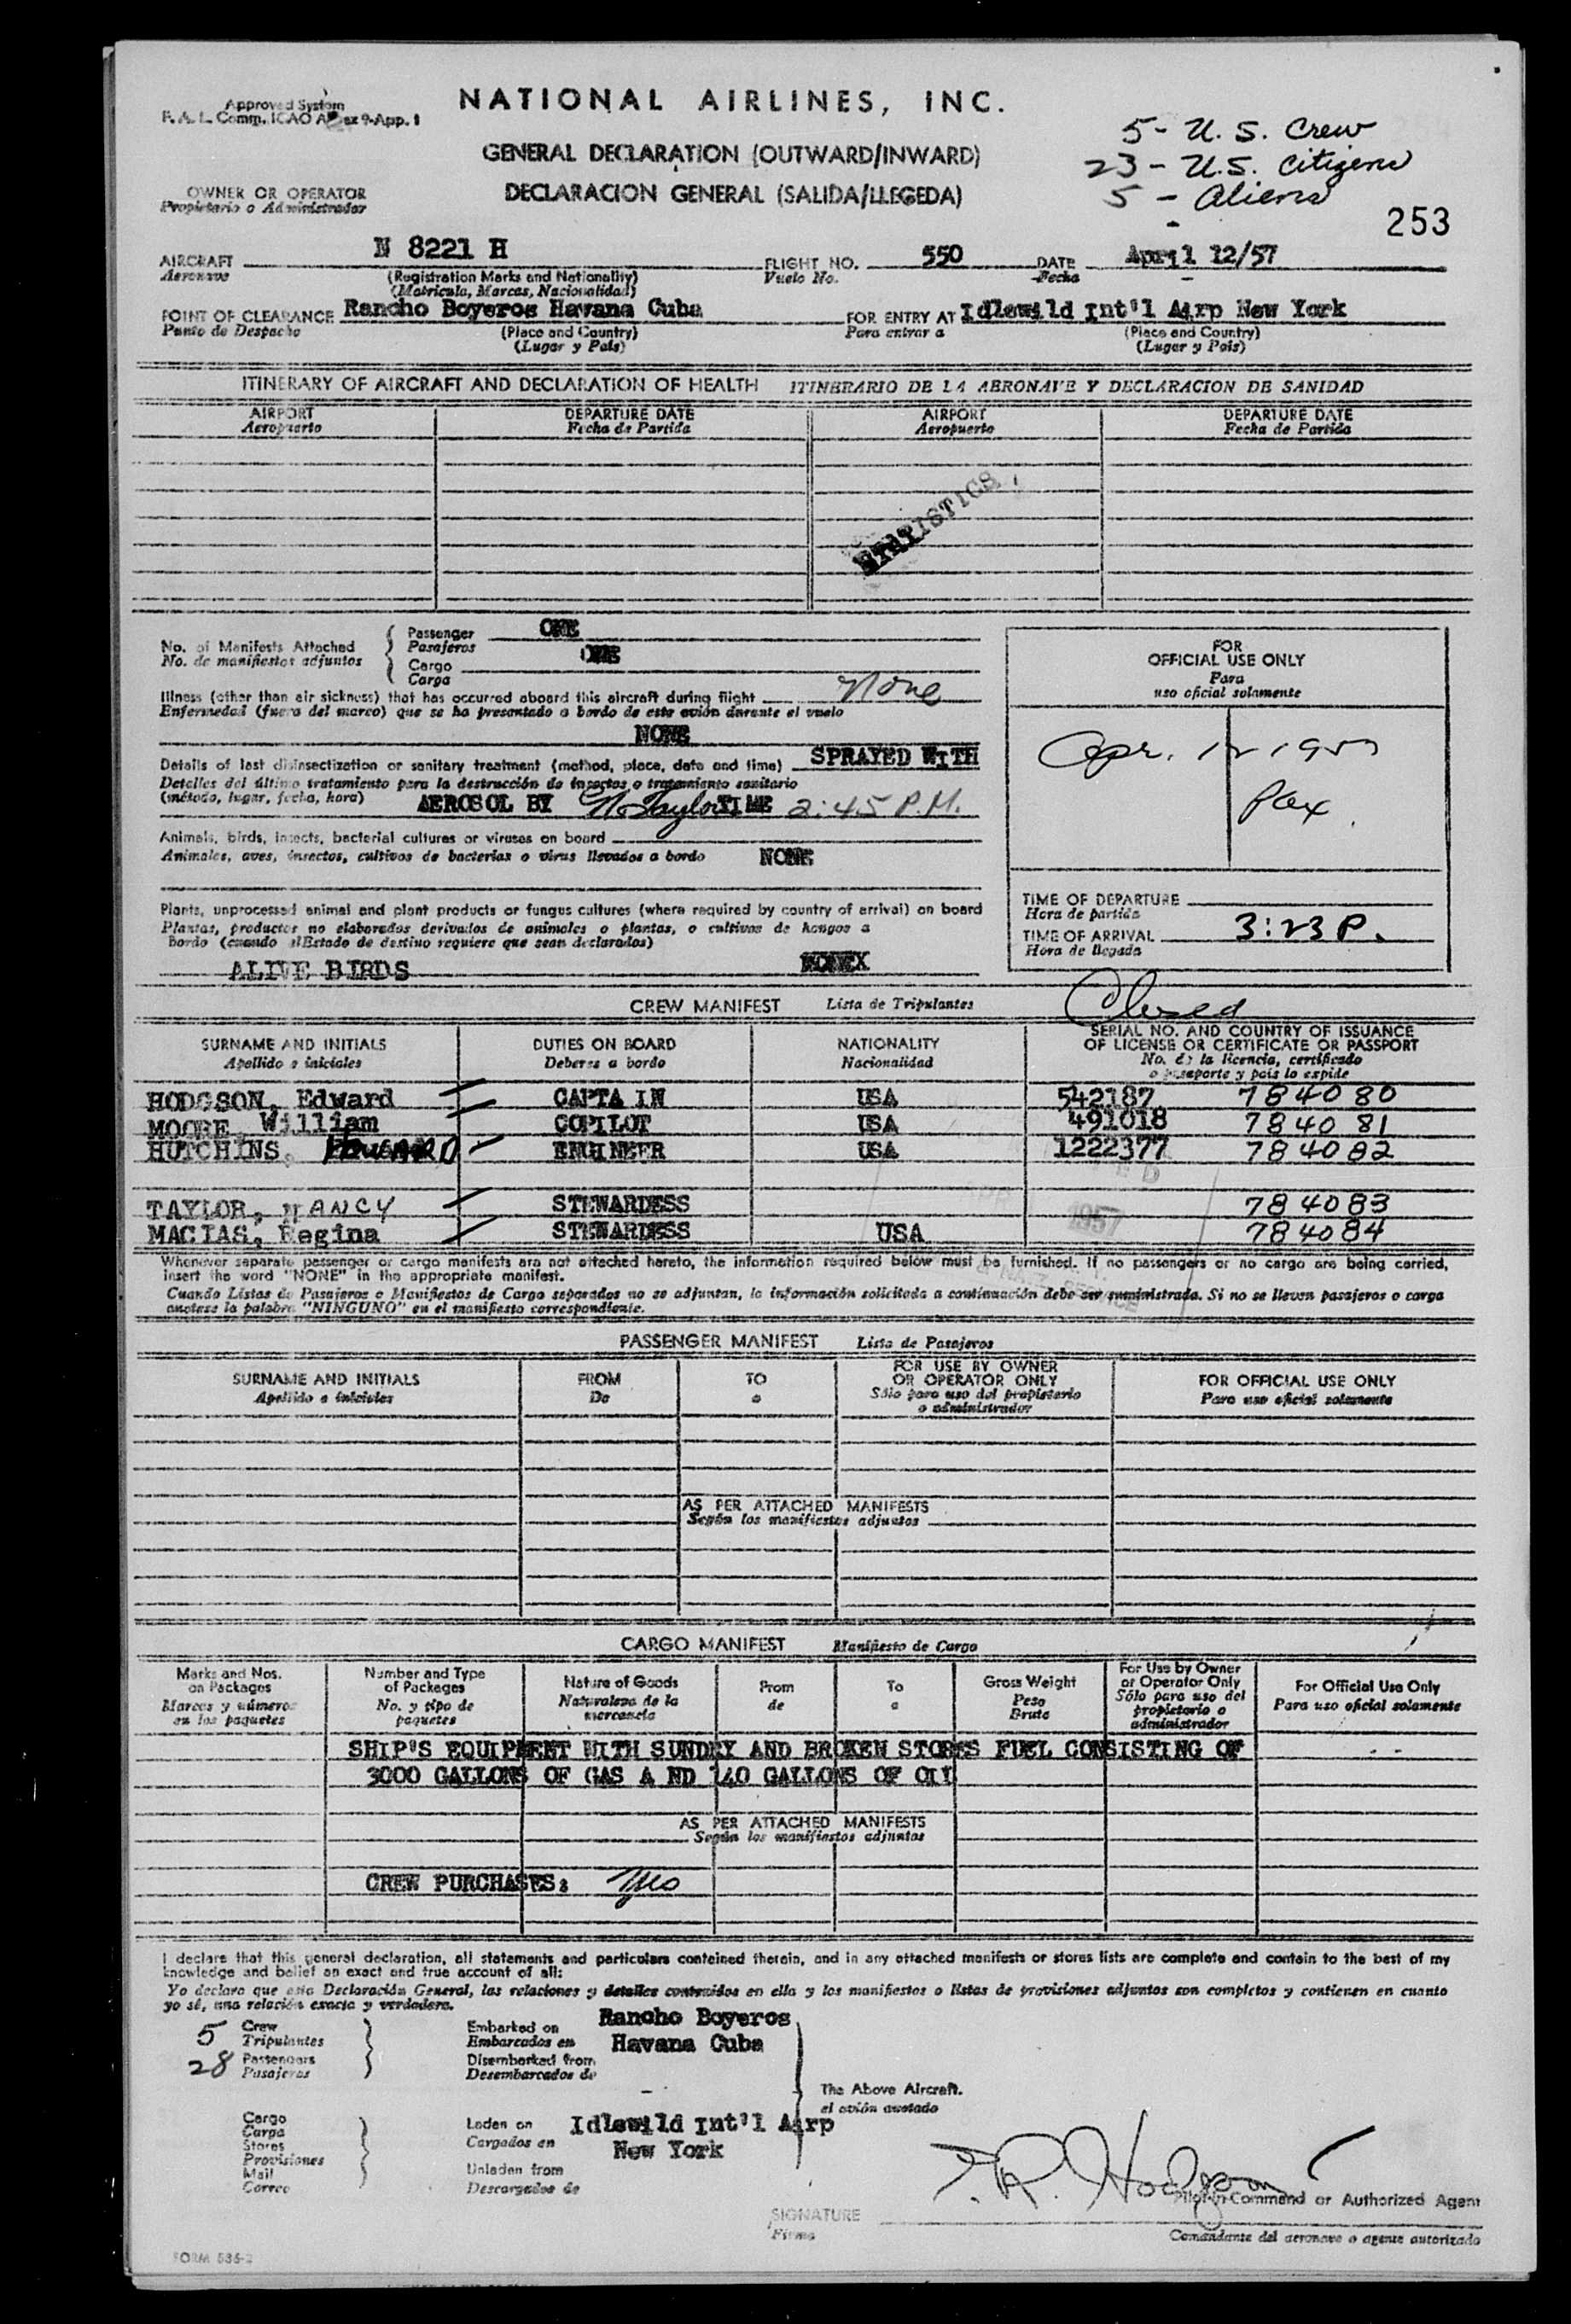 Approved System
F. A. L. Comm. ICAO Annex 9-App. 1
NATIONAL AIRLINES, INC.
GENERAL DECLARATION (OUTWARD/INWARD)
DECLARACION GENERAL (SALIDA/LLEGEDA)
5 - U. S. Crew
23 - U.S. Citizens
5 - Aliens
253
OWNER OR OPERATOR
Propietario o Administrador
AIRCRAFT N 8221 H FLIGHT NO. 550 DATE April 12/57
Aeronave (Registration Marks and Nationality) Vuelo No. Fecha
(Matricula, Marcas, Nacionalidad)
POINT OF CLEARANCE Rancho Boyeros Havana Cuba FOR ENTRY AT Idlewild Int'l Airp New York
Punto de Despacho (Place and Country) Para entrar a (Place and Country)
(Lugar y País) (Lugar y País)
ITINERARY OF AIRCRAFT AND DECLARATION OF HEALTH ITINERARIO DE LA AERONAVE Y DECLARACION DE SANIDAD
AIRPORT DEPARTURE DATE AIRPORT DEPARTURE DATE
Aeropuerto Fecha de Partida Aeropuerto Fecha de Partida
STATISTICS
No. of Manifests Attached Passenger ONE
No. de manifiestos adjuntos Pasajeros
Cargo ONE
Carga
Illness (other than air sickness) that has occurred aboard this aircraft during flight None
Enfermedad (fuera del mareo) que se ha presentado a bordo de este avión durante el vuelo
NONE
Details of last disinsectization or sanitary treatment (method, place, date and time) SPRAYED WITH
Detalles del último tratamiento para la destrucción de insectos o tratamiento sanitario
(método, lugar, fecha, hora) AEROSOL BY N. Taylor TIME 2:45 P.M.
Animals, birds, insects, bacterial cultures or viruses on board
Animales, aves, insectos, cultivos de bacterias o virus llevados a bordo NONE
Plants, unprocessed animal and plant products or fungus cultures (where required by country of arrival) on board
Plantas, productos no elaborados derivados de animales o plantas, o cultivos de hongos a
bordo (cuando el Estado de destino requiere que sean declarados)
ALIVE BIRDS NONEX
FOR
OFFICIAL USE ONLY
Para
uso oficial solamente
Apr. 12 1957
TIME OF DEPARTURE
Hora de partida
TIME OF ARRIVAL 3:23 P.
Hora de llegada
Closed
CREW MANIFEST Lista de Tripulantes
SURNAME AND INITIALS DUTIES ON BOARD NATIONALITY SERIAL NO. AND COUNTRY OF ISSUANCE
OF LICENSE OR CERTIFICATE OR PASSPORT
Apellido e iniciales Deberes a bordo Nacionalidad No. de la licencia, certificado
o pasaporte y pais lo expide
HODGSON, Edward CAPTAIN USA 542187 784080
MOORE, William COPILOT USA 491018 784081
HUTCHINS, EDWARD ENGINEER USA 1222377 784082
TAYLOR, NANCY STEWARDESS 784083
MACIAS, Regina STEWARDESS USA 784084
1957
Whenever separate passenger or cargo manifests are not attached hereto, the information required below must be furnished. If no passengers or no cargo are being carried,
insert the word "NONE" in the appropriate manifest.
Cuando Listas de Pasajeros o Manifiestos de Cargo separados no se adjuntan, la información solicitada a continuación debe ser suministrada. Si no se lleven pasajeros o carga
anotese la palabra "NINGUNO" en el manifiesto correspondiente.
PASSENGER MANIFEST Lista de Pasajeros
SURNAME AND INITIALS FROM TO FOR USE BY OWNER
OR OPERATOR ONLY FOR OFFICIAL USE ONLY
Apellido e iniciales De a Sólo para uso del propietario
o administrador Para uso oficial solamente
AS PER ATTACHED MANIFESTS
Según los manifiestos adjuntos
CARGO MANIFEST Manifiesto de Cargo
Marks and Nos.
on Packages
Marcas y números
en los paquetes
Number and Type
of Packages
No. y tipo de
paquetes
Nature of Goods
Naturaleza de la
mercancía
From
de
To
a
Gross Weight
Peso
Bruto
For Use by Owner
or Operator Only
Sólo para uso del
propietario o
administrador
For Official Use Only
Para uso oficial solamente
SHIP'S EQUIPMENT WITH SUNDRY AND BROKEN STORES FUEL CONSISTING OF
3000 GALLONS OF GAS A ND 140 GALLONS OF OIL
AS PER ATTACHED MANIFESTS
Según los manifiestos adjuntos
CREW PURCHASES: Yes
I declare that this general declaration, all statements and particulars contained therein, and in any attached manifests or stores lists are complete and contain to the best of my
knowledge and belief an exact and true account of all:
Yo declaro que esta Declaración General, las relaciones y detalles contenidos en ella y los manifiestos o listas de provisiones adjuntos son completos y contienen en cuanto
yo sé, una relación exacta y verdadera.
5 Crew
Tripulantes
28 Passengers
Pasajeros
Embarked on Rancho Boyeros
Embarcados en Havana Cuba
Disembarked from
Desembarcados de
The Above Aircraft.
el avión anotado
Cargo
Carga
Stores
Provisiones
Mail
Correo
Laden on Idlewild Int'l Airp
Cargados en New York
Unladen from
Descargados de
E. R. Hodgson
Pilot-in-Command or Authorized Agent
SIGNATURE
Firma
Comandante del aeronave o agente autorizado
FORM 536-2